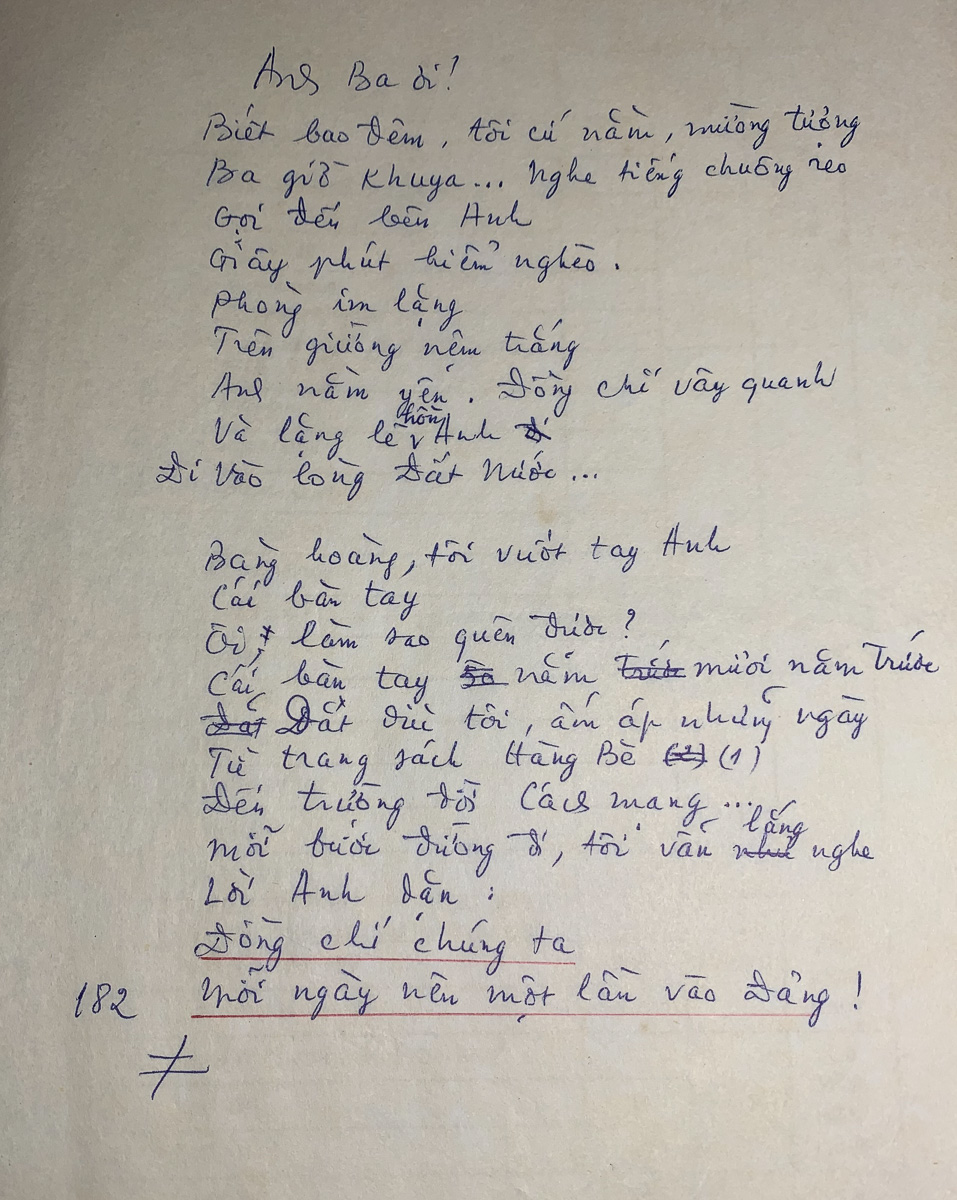 Anh Ba ơi!
Biết bao đêm, tôi cứ nằm, mường tưởng
Ba giờ khuya... Nghe tiếng chuông reo
Gọi đến bên Anh
Giây phút hiểm nghèo.
Phòng im lặng
Trên giường nệm trắng
Anh nằm yên. Đồng chí vây quanh
Và lặng lẽ hồn Anh
Đi vào lòng Đất Nước...
Bàng hoàng, tôi vuốt tay Anh
Cái bàn tay
Ôi, làm sao quên được?
Cái bàn tay nắm mười năm trước
Dắt dìu tôi, ấm áp những ngày
Từ trang sách Hàng Bè (1)
Đến trường đời Cách mạng...
Mỗi bước đường đi, tôi vẫn lắng nghe
Lời Anh dặn:
Đồng chí chúng ta
Mỗi ngày nên một lần vào Đảng!
182
≠